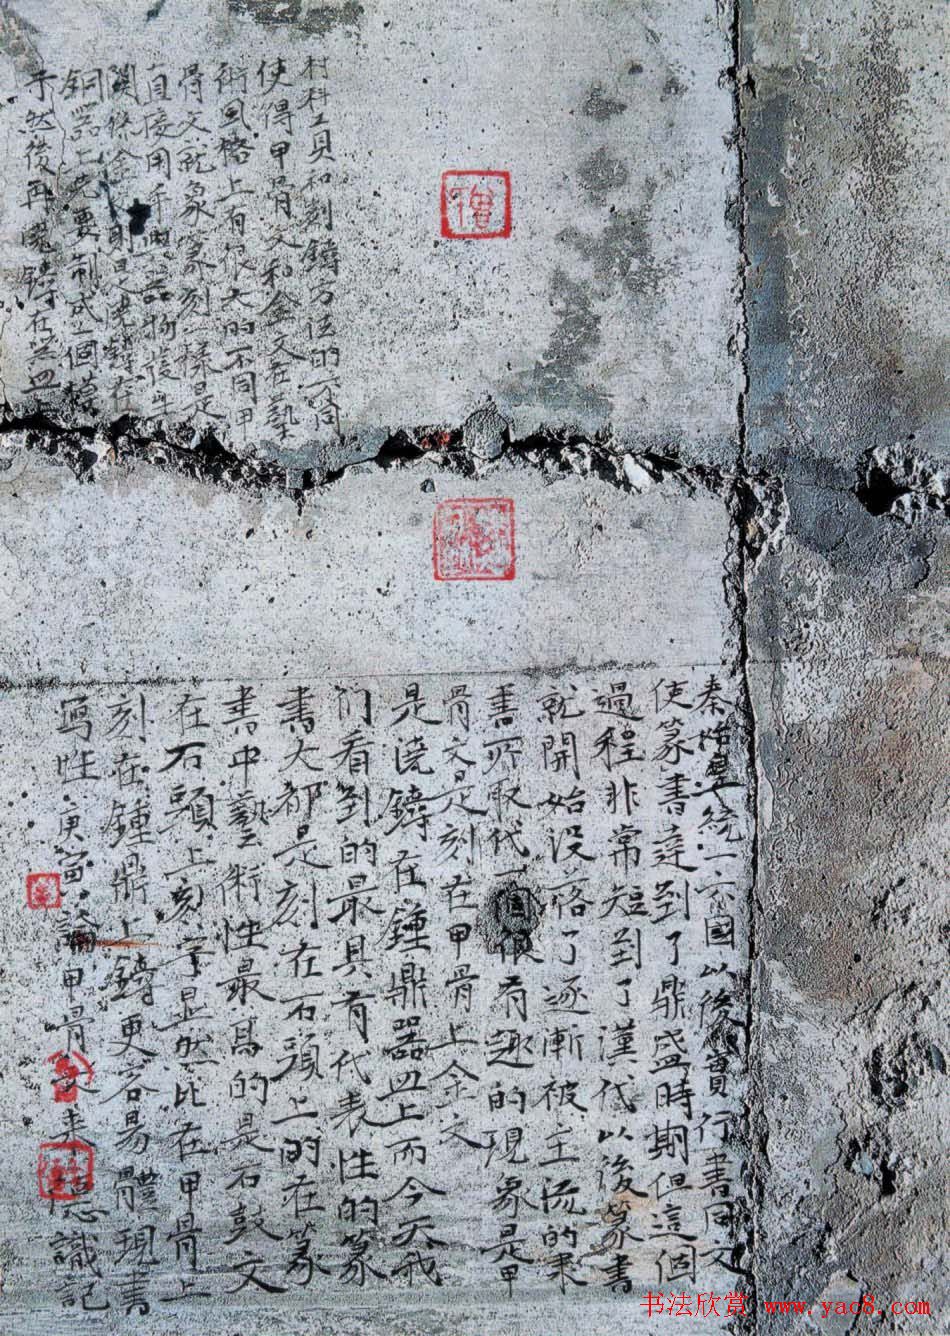 材料工具和刻鑄方法的不同
使得甲骨文和金文在藝
術風格上有很大的不同甲
骨文就象篆刻一樣是
直接用于器物張生
關係金則是澆鑄在
銅器上先要制成一個模
子然後再澆鑄在器皿上
秦始皇統一六國以後實行書同文
使篆書達到了鼎盛時期但這個
過程非常短到了漢代以後篆書
就開始没落了逐漸被主流的隶
書所取代一個很有趣的現象是甲
骨文是刻在甲骨上金文
是澆鑄在鐘鼎器皿上而今天我
们看到的最具有代表性的篆
書大都是刻在石頭上的在篆
書中藝術性最高的是石鼓文
在石頭上刻字显然比在甲骨上
刻在鐘鼎上鑄更容易體現書
寫性庚寅論甲骨文 隱識記
书法欣赏 www.yac8.com